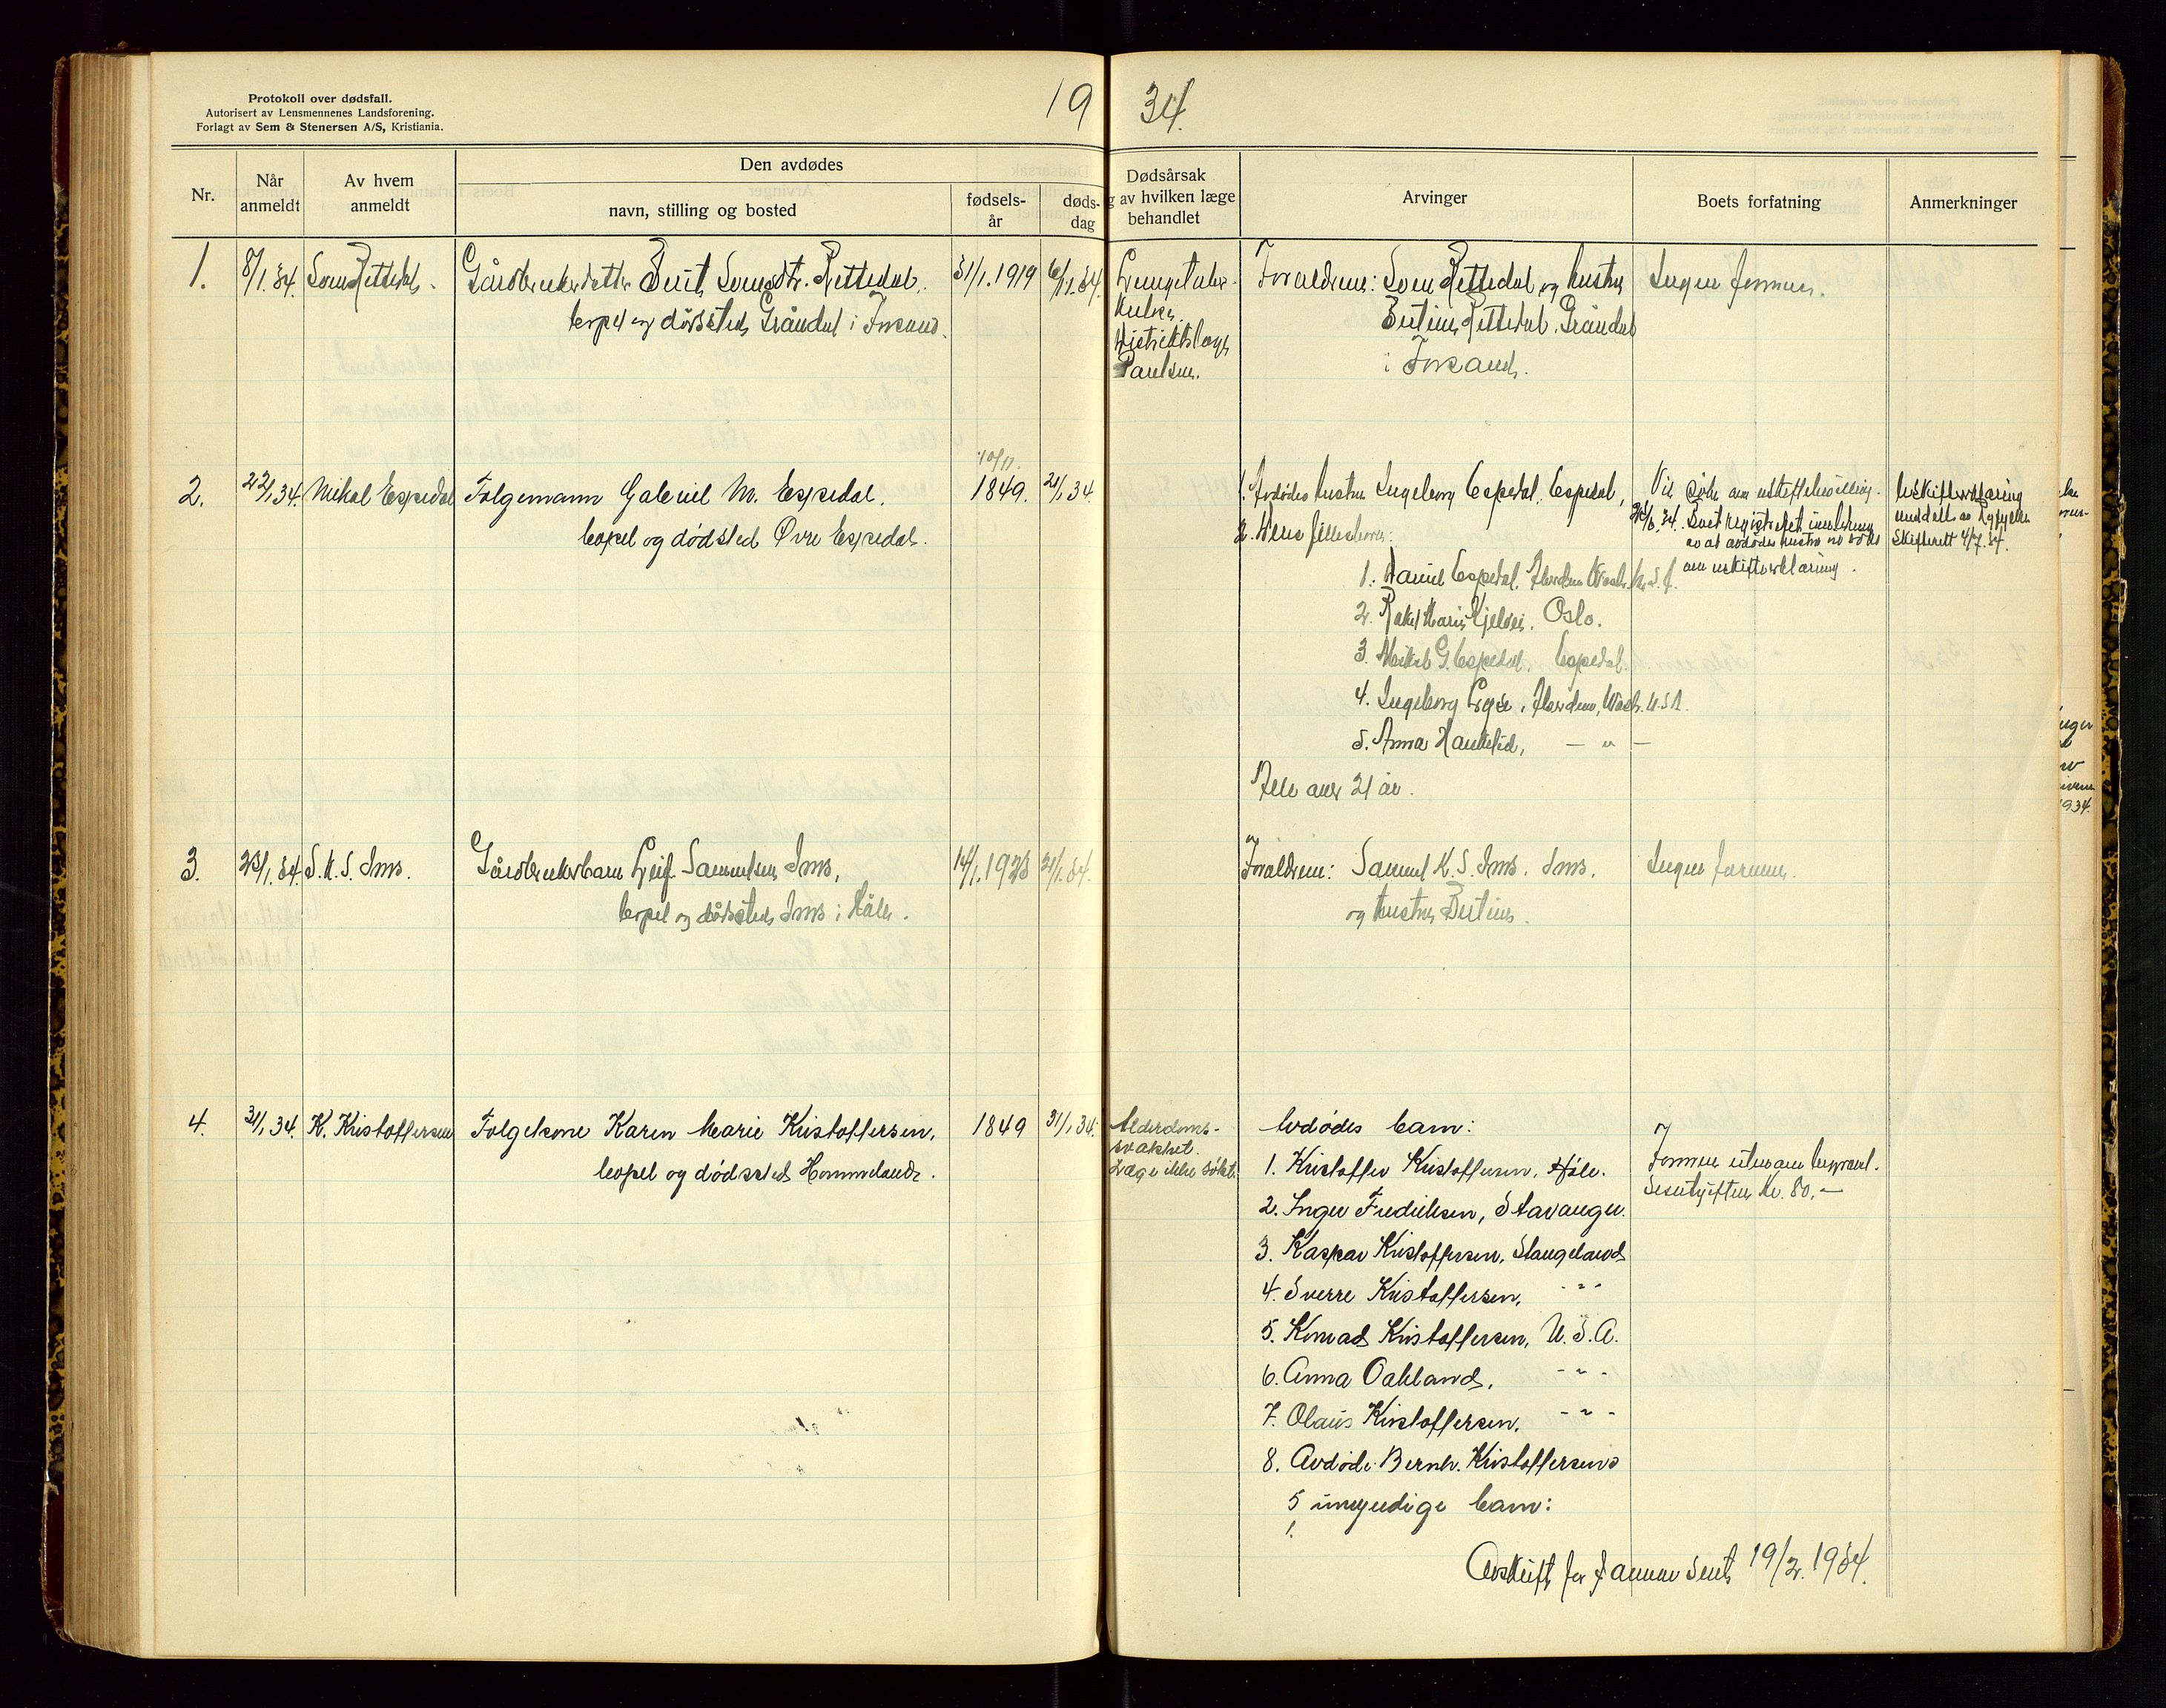 Protokoll over dødsfall.
Autorisert av Lensmennenes Landsforening.
Forlagt av Sem & Stenersen A/S, Kristiania.
19 34.
Nr.
Når anmeldt
Av hvem anmeldt
Den avdødes
navn, stilling og bosted
fødselsår
dødsdag
Dødsårsak
og av hvilken læge
behandlet
Arvinger
Boets forfatning
Anmerkninger
1. 8/1.34. Svend Rettedal. Gårdbrukerdatter Berit Svendsdtr. Rettedal. 31/1.1919 6/1.34.
bopel og dødssted Gråndal i Forsand.
Lungetuber-
kulose.
Distriktslæge
Paulsen.
Foreldrene: Svend Rettedal og hustru
Bertine Rettedal. Gråndal
i Forsand.
Ingen formue.
2. 22/1 34. Mikal Espedal Følgemann Gabriel M. Espedal. 10/11. 1849. 21/1 34.
bopel og dødsted Øvre Espedal.
1. Avdødes hustru Ingeborg Espedal. Espedal,
2. Deres fellesbarn:
1. Daniel Espedal.
2. Rakel Marie Kjelvei. Oslo.
3. Mikal G. Espedal. Espedal.
4. Ingeborg Wash. U.S.A.
5. Anna Haukelid, — " —
Alle over 21 år.
Vil søke om uskiftebevilling.
34. Boet registrert i anledning
av at avdødes hustru vil søke
om uskifteerklæring.
Uskifteerklæring
meddelt av Ryfylke
skifterett 4/7.34.
3. 23/1.34. S. K. S. Ims. Gårdbrukerbarn Leif Samuelsen Ims, 14/1.1923 21/1.34.
bopel og dødssted Ims i Høle.
Foreldrene: Samuel K. S. Ims. Ims.
og hustru Bertine.
Ingen formue.
4. 31/1 34. K. Kristoffersen Følgekone Karen Marie Kristoffersen, 1849 31/1 34.
bopel og dødssted Hommeland.
Alderdoms-
svakhet.
Læge ikke søkt.
Avdødes barn:
1. Kristoffer Kristoffersen, Høle.
2. Inger Fredriksen, Stavanger.
3. Kaspar Kristoffersen, Stangeland
4. Sverre Kristoffersen, - " -
5. Konrad Kristoffersen, U.S.A.
6. Anna Oakland, - " -
7. Olaus Kristoffersen, - " -
8. Avdøde Bernh. Kristoffersens
5 umyndige barn:
1.
Formue
kr. 80,-
Avskrift for Januar sendt 19/2. 1934.